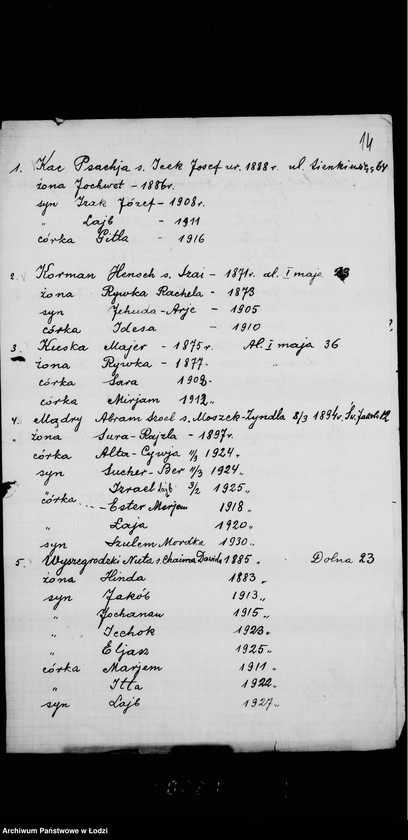 14
1. Kac Psachja s. Icek Josef ur. 1888 r. ul. Sienkiewicza 64
żona Jochwet - 1886 r.
syn Izak Józef - 1908 r.
" Lajb - 1911
córka Gitla - 1916
2. Korman Hensch s. Szai - 1871 r. al. I maja 23
żona Rywka Rachela - 1873
syn Jehuda-Arje - 1905
córka Idesa - 1910
3. Kieska Majer - 1875 r. Al. I maja 36
żona Rywka - 1877 "
córka Sara 1908 "
córka Mirjam 1912 "
4. Mądry Abram Szoel s. Moszek-Zyndla 8/3 1894 r. Św. Jakóba 12
żona Sura-Rajzla - 1897 r.
córka Alta-Cywja 11/3 1924 "
syn Sucher-Ber 11/3 1924 "
" Izrael Lajb 3/2 1925 "
córka Ester Merjem 1918 "
" Laja 1920 "
syn Szulem Mordka 1930 "
5. Wyszegrodzki Nuta s. Chaima Dawida 1885 " Dolna 23
żona Hinda 1883 "
syn Jakób 1913 "
" Jochanan 1915 "
" Icchok 1923 "
" Eljasz 1925 "
córka Marjem 1911 "
" Itta 1922 "
syn Lajb 1927 "
Archiwum Państwowe w Łodzi